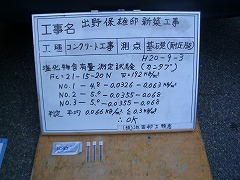 工事名 出野保雄邸新築工事
工種 コンクリート工事 測点 基礎(耐圧盤)
H20-9-3
塩化物含有量測定試験 (カンタブ)
Fc=21-15-20N W=192kg/m³
NO.1 - 4.8 - 0.0326 - 0.063
NO.2 - 5.0 - 0.0355 - 0.068
NO.3 - 5.0 - 0.0355 - 0.068
判定 平均 0.066kg/m³ ≦ 0.3kg/m³
∴OK